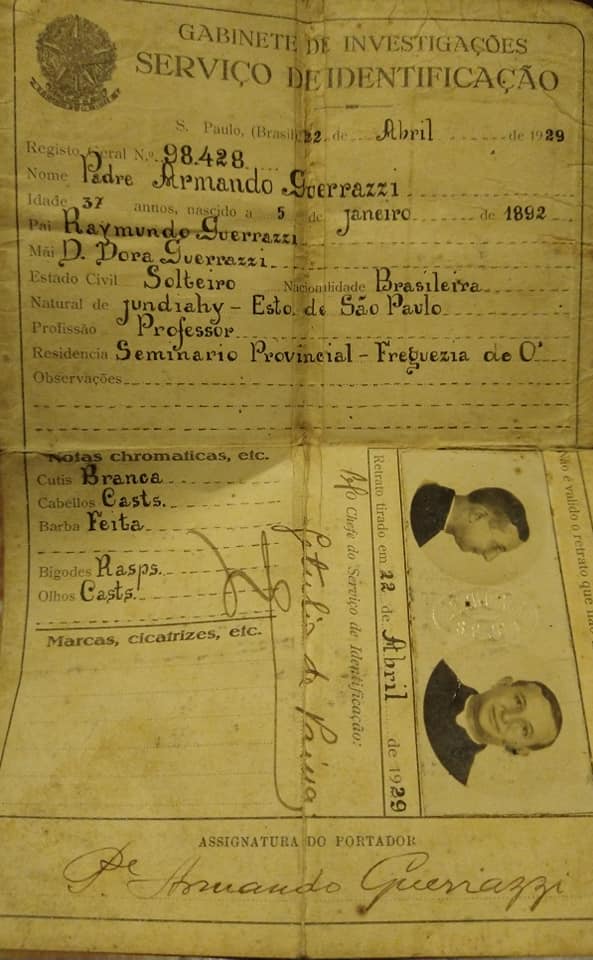 GABINETE DE INVESTIGAÇÕES
SERVIÇO DE IDENTIFICAÇÃO
S. Paulo, (Brasil) 22 de Abril de 1929
Registo Geral N.º 98.428
Nome Padre Armando Guerrazzi
Idade 37 annos, nascido a 5 de Janeiro de 1892
Pai Raymundo Guerrazzi
Mãi D. Dora Guerrazzi
Estado Civil Solteiro Nacionalidade Brasileira
Natural de Jundiahy - Esto. de São Paulo
Profissão Professor
Residencia Seminario Provincial - Freguezia do O'
Observações
Notas chromaticas, etc.
Cutis Branca
Cabellos Casts.
Barba Feita
Bigodes Rasps.
Olhos Casts.
Marcas, cicatrizes, etc.
O Chefe do Serviço de Identificação:
Retrato tirado em 22 de Abril de 1929
Não é valido o retrato que
ASSIGNATURA DO PORTADOR
Pe. Armando Guerrazzi